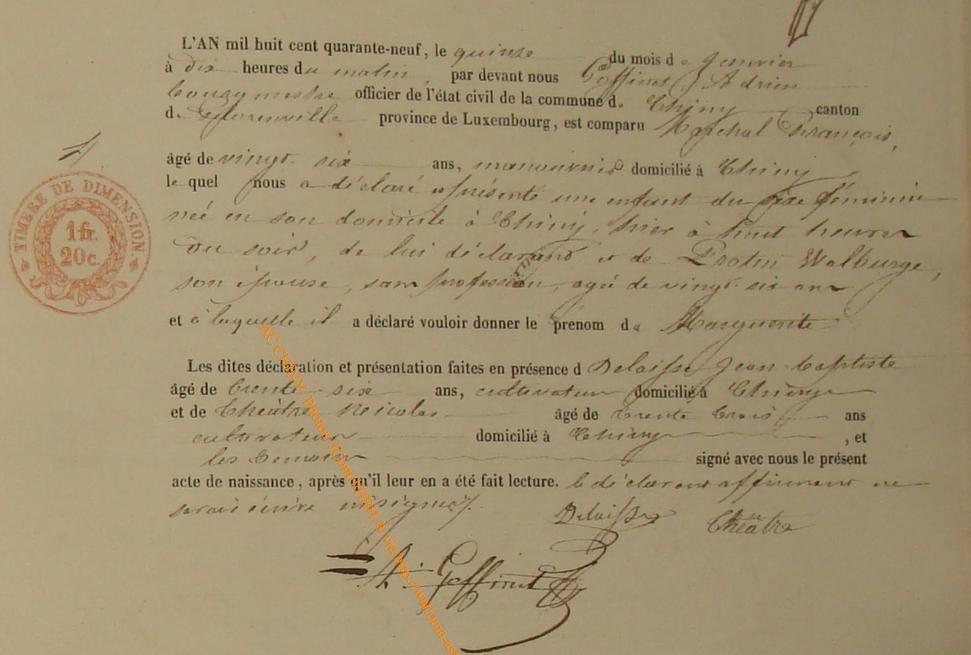 L'AN mil huit cent quarante-neuf, le quinze du mois de Janvier
à dix heures du matin, par devant nous Goffinet, Adrien
bourgmestre officier de l'état civil de la commune de Chiny canton
de Florenville province de Luxembourg, est comparu Marchal François,
âgé de vingt-six ans, manouvrier domicilié à Chiny
le quel nous a déclaré et présenté une enfant du sexe féminin
née en son domicile à Chiny, hier à huit heures
du soir, de lui déclarant et de Protin Walburge,
son épouse, sans profession, agée de vingt-six ans
et à laquelle il a déclaré vouloir donner le prenom de Marguerite
Les dites déclaration et présentation faites en présence d Delaisse Jean-baptiste
âgé de trente-six ans, cultivateur domicilié à Chiny
et de Théâtre Nicolas âgé de trente trois ans
cultivateur domicilié à Chiny, et
les temoins signé avec nous le présent
acte de naissance, après qu'il leur en a été fait lecture. le déclarant affirmant ne
savoir écrire ni signer.
Delaisse Théâtre
A. Goffinet
TIMBRE DE DIMENSION
1 fr.
20c.